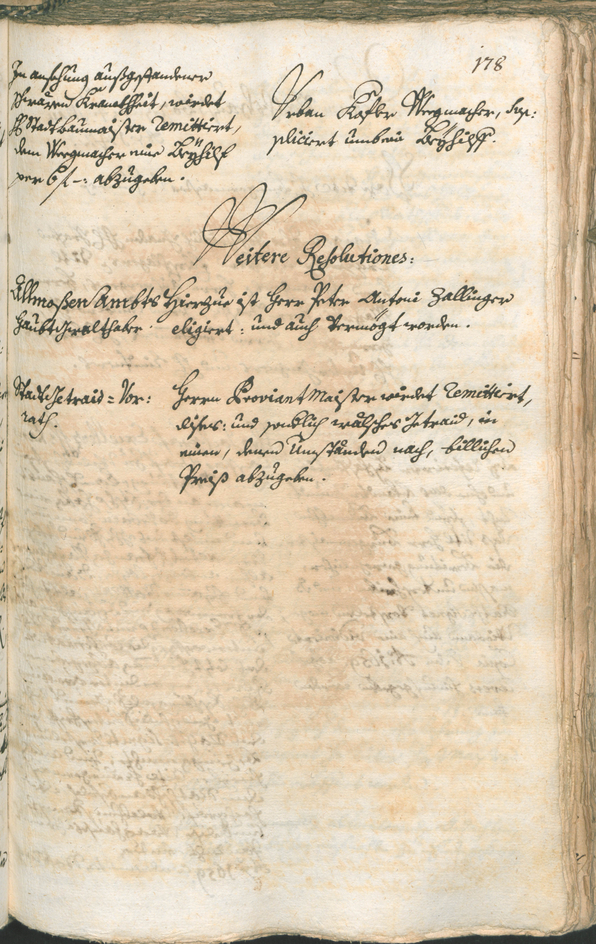 178
In ansehung außgestandener
schwären Kranckheit, würdet
H Stattbaumaister remittiert,
dem Wegmacher eine Beyhilf
per 6 f –: abzugeben.
Urban Kofler Wegmacher, sup:
pliciert umb ein Beyhilff.
Weitere Resolutiones:
Allmoßen Ambts
Haubt
Hierzue ist Herr Peter Antoni Zallinger
eligiert: und auch vermögt worden.
Statt Getraid = Vor:
rath.
Herrn Proviant Maister würdet remittiert,
dises: und wälsches Getraid, in
einen, denen Umständen nach, billichen
Preiß abzugeben.